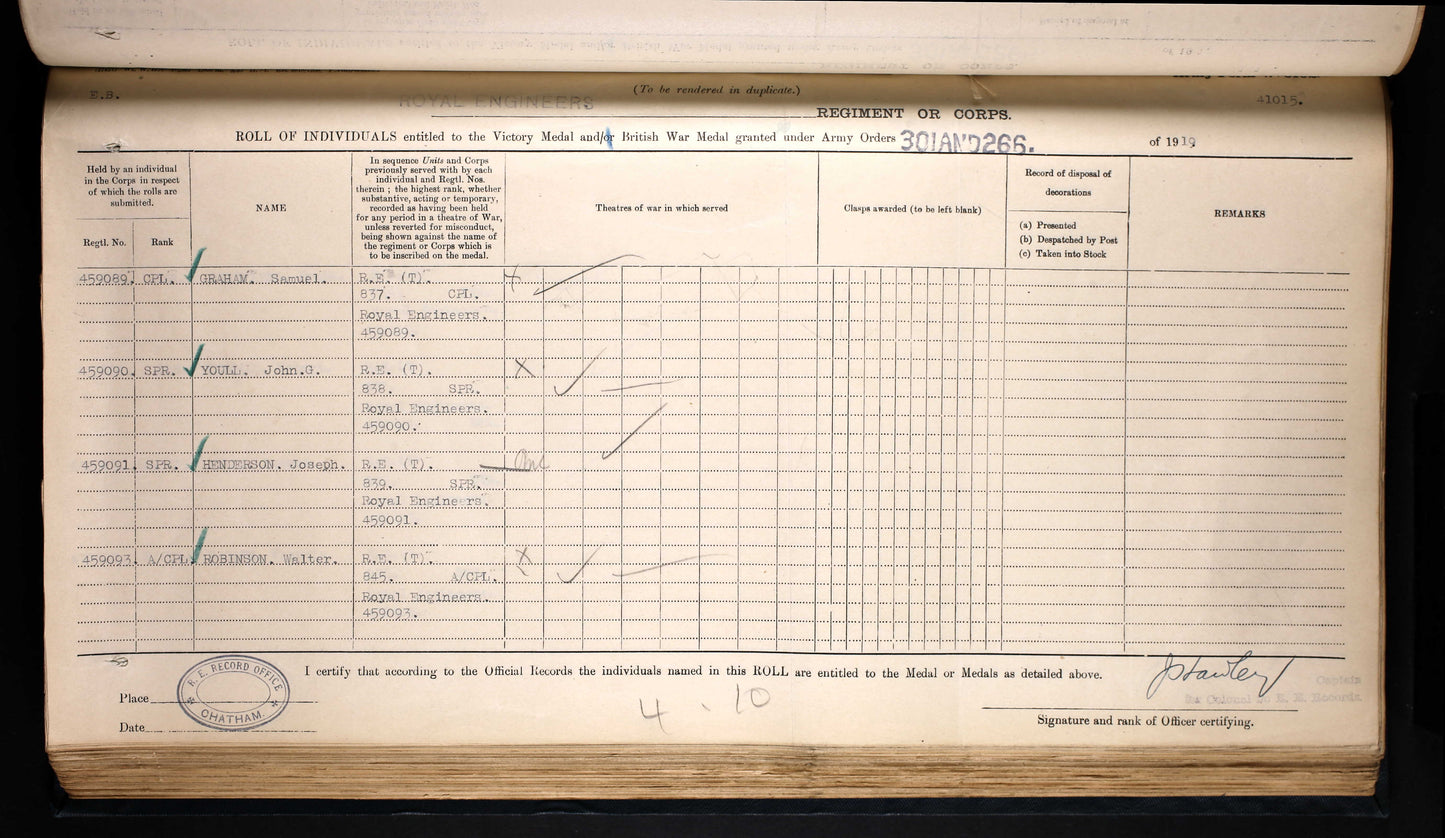 E.B.
(To be rendered in duplicate.)
41015.
ROYAL ENGINEERS
REGIMENT OR CORPS.
ROLL OF INDIVIDUALS entitled to the Victory Medal and/or British War Medal granted under Army Orders 301AND266. of 1919
Held by an individual
in the Corps in respect
of which the rolls are
submitted.
Regtl. No.
Rank
NAME
In sequence Units and Corps
previously served with by each
individual and Regtl. Nos.
therein; the highest rank, whether
substantive, acting or temporary,
recorded as having been held
for any period in a theatre of War,
unless reverted for misconduct,
being shown against the name of
the regiment or Corps which is
to be inscribed on the medal.
Theatres of war in which served
Clasps awarded (to be left blank)
Record of disposal of
decorations
(a) Presented
(b) Despatched by Post
(c) Taken into Stock
REMARKS
459089. CPL. GRAHAM. Samuel. R.E. (T).
837. CPL.
Royal Engineers.
459089.
459090. SPR. YOULL. John.G. R.E. (T).
838. SPR.
Royal Engineers.
459090.
459091. SPR. HENDERSON. Joseph. R.E. (T).
839. SPR.
Royal Engineers.
459091.
459093. A/CPL. ROBINSON. Walter. R.E. (T).
845. A/CPL.
Royal Engineers.
459093.
I certify that according to the Official Records the individuals named in this ROLL are entitled to the Medal or Medals as detailed above.
R.E. RECORD OFFICE
CHATHAM.
Place
Date
4 . 10
Captain
for Colonel i/c R. E. Records.
Signature and rank of Officer certifying.